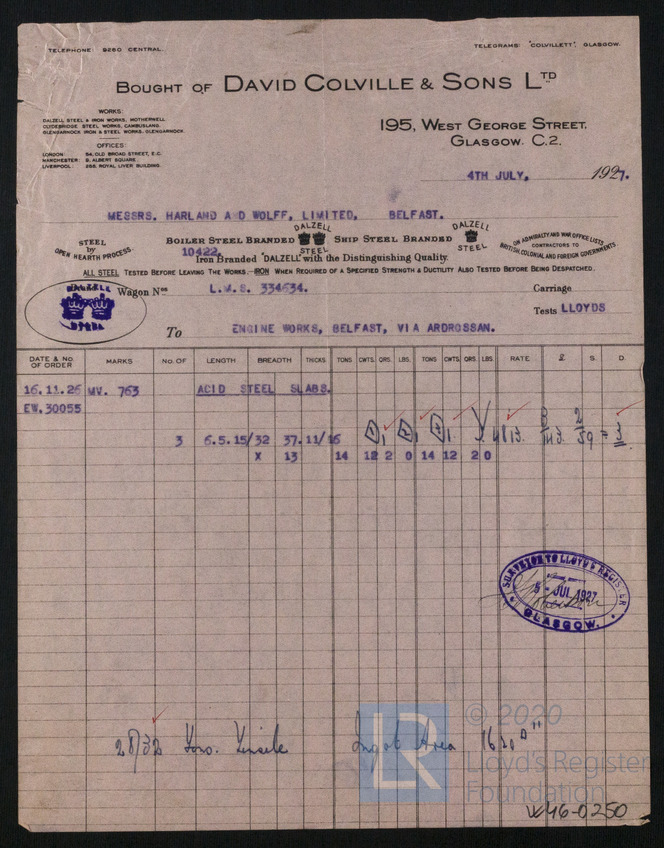 TELEPHONE: 9260 CENTRAL.
TELEGRAMS: "COLVILLETT", GLASGOW.
BOUGHT OF DAVID COLVILLE & SONS LTD
WORKS:
DALZELL STEEL & IRON WORKS, MOTHERWELL
CLYDEBRIDGE STEEL WORKS, CAMBUSLANG.
GLENGARNOCK IRON & STEEL WORKS, GLENGARNOCK
OFFICES:
LONDON: 54, OLD BROAD STREET, E.C.
MANCHESTER: 9, ALBERT SQUARE
LIVERPOOL: 256, ROYAL LIVER BUILDING.
195, WEST GEORGE STREET,
GLASGOW. C.2.
4TH JULY, 1927.
MESSRS. HARLAND AND WOLFF, LIMITED, BELFAST.
STEEL by OPEN HEARTH PROCESS.
BOILER STEEL BRANDED DALZELL STEEL SHIP STEEL BRANDED DALZELL STEEL
ON ADMIRALTY AND WAR OFFICE LISTS
CONTRACTORS TO
BRITISH, COLONIAL AND FOREIGN GOVERNMENTS
10422.
Iron Branded "DALZELL" with the Distinguishing Quality.
ALL STEEL TESTED BEFORE LEAVING THE WORKS.—IRON WHEN REQUIRED OF A SPECIFIED STRENGTH & DUCTILITY ALSO TESTED BEFORE BEING DESPATCHED.
DALZELL STEEL
Wagon Nos L.M.S. 334634.
Carriage
Tests LLOYDS
To ENGINE WORKS, BELFAST, VIA ARDROSSAN.
DATE & NO. OF ORDER MARKS NO. OF LENGTH BREADTH THICKS TONS CWTS. QRS. LBS. TONS CWTS. QRS. LBS. RATE £. S. D.
16.11.26 MV. 763 ACID STEEL SLABS.
EW.30055
3 6.5.15/32 37.11/16
X 13 14 12 2 0 14 12 2 0
SURVEYOR TO LLOYD'S REGISTER
5 - JUL 1927
GLASGOW.
28/32 Tons. Tensile Ingot Area 1620"
© 2020
LR
Lloyd's Register
Foundation
W46-0250